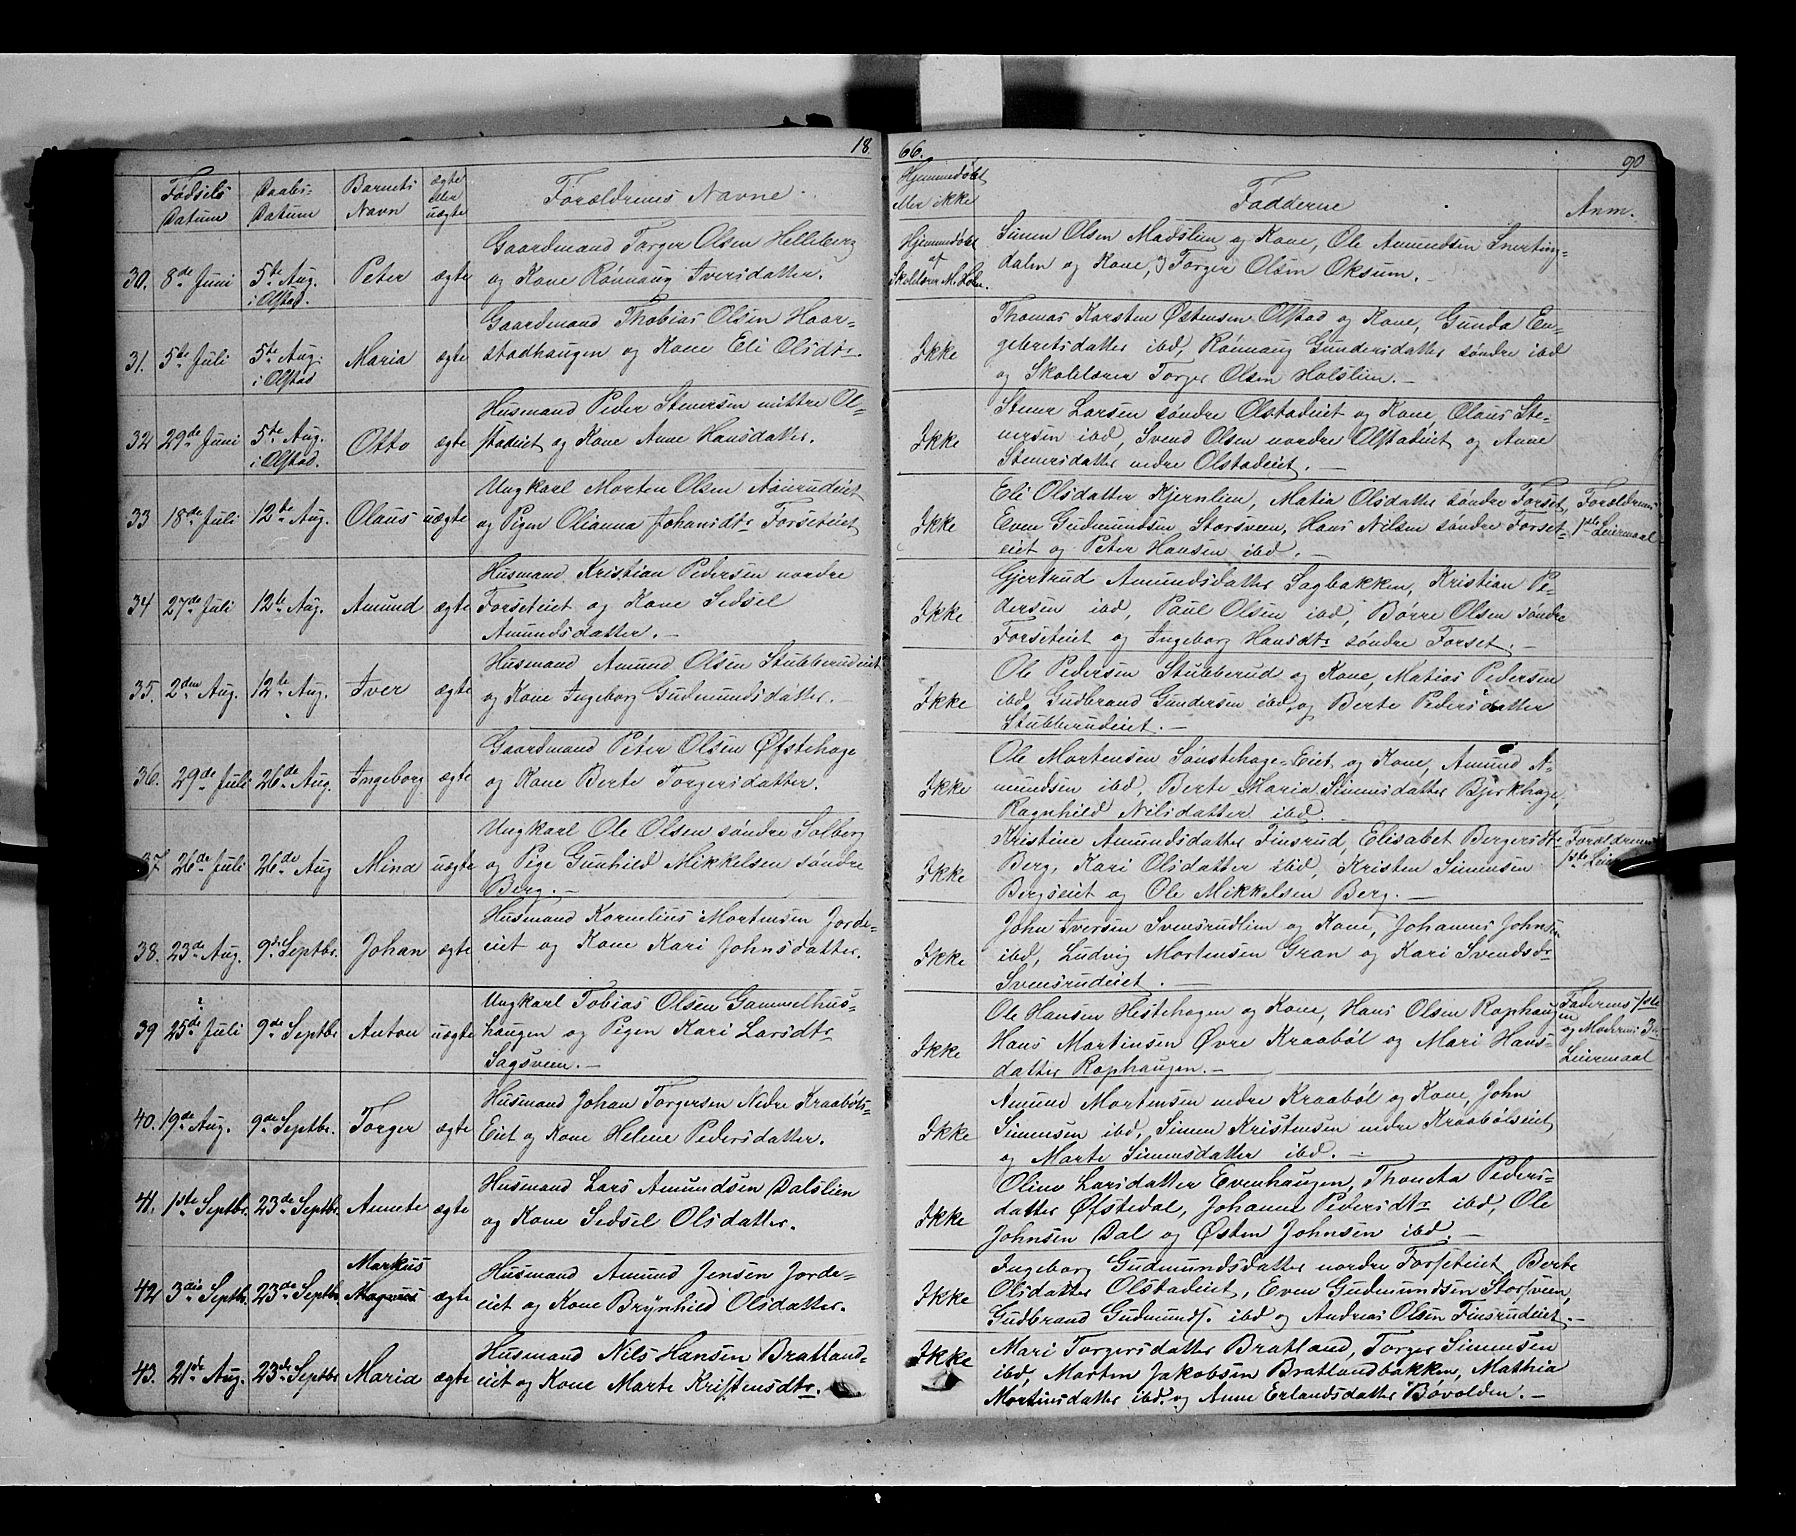 18
Fødsels Datum
Daabs- Datum
Barnets Navn
ægte eller uægte
Forældrenes Navne.
30. 8de Juni 5te Aug. i Olstad. Peter ægte
Gaardmand Torger Olsen Helleberg
og Kone Rønnaug Iversdatter.
31. 5te Juli 5te Aug. i Olstad Maria ægte
Gaardmand Thobias Olsen Haar-
stadhaugen og Kone Eli Olsdtr.
32 29de Juni 5te Aug. i Olstad. Otto ægte
Husmand Peder Stenersen mittre Ol-
stadeiet og Kone Anne Hansdatter.
33 18de Juli 12te Aug. Olaus uægte
Ungkarl Morten Olsen Aaurudeiet
og Pigen Olianna Johansdtr Forseteiet
34 27de Juli 12te Aug. Amund ægte
Husmand Kristian Pedersen nordre
Forseteiet og Kone Sidsel
Amundsdatter.
35. 2den Aug. 12te Aug. Iver ægte
Husmand Amund Olsen Stubberudeiet
og Kone Ingeborg Gudmundsdatter.
36. 29de Juli 26de Aug. Ingeborg ægte
Gaardmand Peter Olsen Øfstehage
og Kone Berte Torgersdatter.
37 26de Juli 26de Aug Mina uægte
Ungkarl Ole Olsen søndre Solberg
og Pige Gunhild Mikkelsen søndre
Berg.
38. 23de Aug. 9de Septbr. Johan ægte
Husmand Kornelius Mortensen Jorde-
eiet og Kone Kari Johnsdatter.
39 25de Juli 9de Septbr Anton uægte
Ungkarl Tobias Olsen Gammelhus-
haugen og Pigen Kari Larsdtr
Sagsveen.
40. 19de Aug. 9de Septbr. Torger ægte
Husmand Johan Torgersen Nedre Kraabøls-
Eiet og Kone Helene Pedersdatter.
41. 1ste Septbr. 23de Septbr. Annete ægte
Husmand Lars Amundsen Dalslien
og Kone Sidsel Olsdatter.
42 3die Septbr. 23de Septbr Markus Magnus ægte
Husmand Amund Jensen Jorde-
eiet og Kone Brynhild Olsdatter.
43. 21de Aug. 23de Septbr Maria ægte
Husmand Nils Hansen Bratland-
eiet og Kone Marte Kristensdtr.
66.
90
Hjemmedøbt eller ikke
Fadderne
Anm.
Hjemmedøbt
af
Skolelærer M. Holm.
Simen Olsen Madslien og Kone, Ole Amundsen Snerting-
dalen og Kone, og Torger Olsen Oksum.
Ikke
Thomas Karsten Østensen Olstad og Kone, Gunda En-
gebretsdatter ibd, Rønnaug Gundersdatter søndre ibd
og Skolelærer Torger Olsen Holslien.
Ikke
Stener Larsen søndre Olstadeiet og Kone, Olaus Ste-
nersen ibd, Svend Olsen nordre Olstadeiet og Anne
Stenersdatter nedre Olstadeiet.
Ikke
Eli Olsdatter Kjernlien, Matia Olsdatter søndre Forset,
Even Gudmundsen Storsveen, Hans Nilsen søndre Forset-
eiet og Peter Hansen ibd.
Forældrenes
1ste Leiermaal
Ikke
Gjertrud Amundsdatter Sagbakken, Kristian Pe-
dersen ibd, Paul Olsen ibd, Børre Olsen søndre
Forseteiet og Ingeborg Hansdtr søndre Forset.
Ikke
Ole Pedersen Stubberud og Kone, Matias Pedersen
ibd, Gudbrand Gundersen ibd, og Berte Pedersdatter
Stubberudeiet.
Ikke
Ole Mortensen Sønstehage-Eiet og Kone, Amund A-
mundsen ibd, Berte Maria Simensdatter Bjørkhage,
Ragnhild Nilsdatter ibd
Ikke
Kristine Amundsdatter Finsrud, Elisabet Bergersdtr
Berg, Kari Olsdatter ibd, Kristen Simensen
Bergseiet og Ole Mikkelsen Berg.
Forældrenes
1ste
Ikke
John Iversen Svensrudlien og Kone, Johannes Johnsen
ibd, Ludvig Mortensen Gran og Kari Svendsdr
Svensrudeiet.
Ikke
Ole Hansen Hestehagen og Kone, Hans Olsen Rophaugen
Hans Martinsen Øvre Kraabøl og Mari Hans-
datter Rophaugen.
Faderens 1ste
og Moderens 3die
Leiermaal
Ikke
Amund Mortensen nedre Kraabøl og Kone, John
Simensen ibd, Simen Kristensen nedre Kraabølseiet
og Marte Simensdatter ibd.
Ikke
Oline Larsdatter Evenhaugen, Thoneta Peders-
datter Øfstedal, Johanne Pedersdtr ibd, Ole
Johnsen Dal og Østen Johnsen ibd.
Ikke
Ingeborg Gudmundsdatter nordre Forseteiet, Berte
Olsdatter Olstadeiet, Even Gudmundsen Storsveen,
Gudbrand Gudmunds. ibd og Andreas Olsen Finsrudeiet.
Ikke
Mari Torgersdatter Bratland, Torger Simensen
ibd, Morten Jakobsen Bratlandbakken, Mathia
Mortensdatter ibd. og Anne Erlandsdatter Bøvolden.